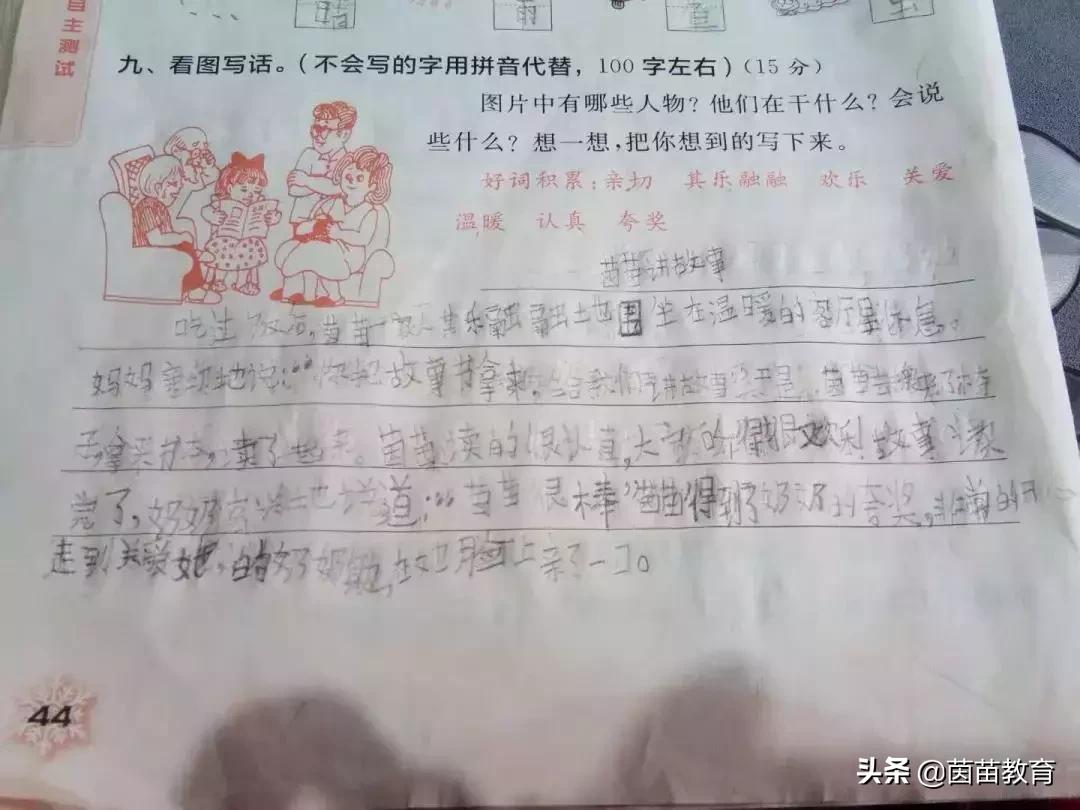 自主测试
晴
九、看图写话。(不会写的字用拼音代替,100字左右)(15分)
图片中有哪些人物?他们在干什么?会说
些什么?想一想,把你想到的写下来。
好词积累:亲切 其乐融融 欢乐 关爱
温暖 认真 夸奖
茵苗讲故事
吃过饭后,茵苗一家人其乐融融地围坐在温暖的客厅里休息。
妈妈亲切地说:“你把故事书拿来,给我们讲故事
去拿来书本,读了起来。茵苗读的很认真,大家听得很欢乐故事读
完了,奶奶高兴地说道:“茵苗很棒”茵苗得到了奶奶的夸奖,
走到关爱她的奶奶,在她脸上亲了一口。
44
头条@茵苗教育